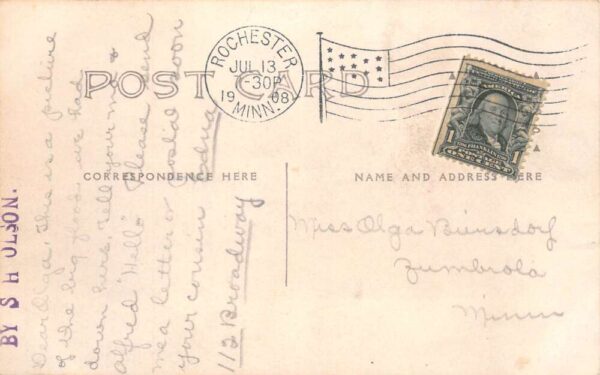 POST CARD
ROCHESTER
JUL 13
-30P
1908
MINN.
CORRESPONDENCE HERE
NAME AND ADDRESS HERE
BY S H OLSON.
Dear Olga, This is a picture
of the big flood we had
down here. Tell your ma &
Alfred "Hello" Please send
me a letter or postal soon
your cousin
112 Broadway
Miss Olga
Zumbrota
Minn
FRANKLIN
POSTAGE
ONE CENT
1